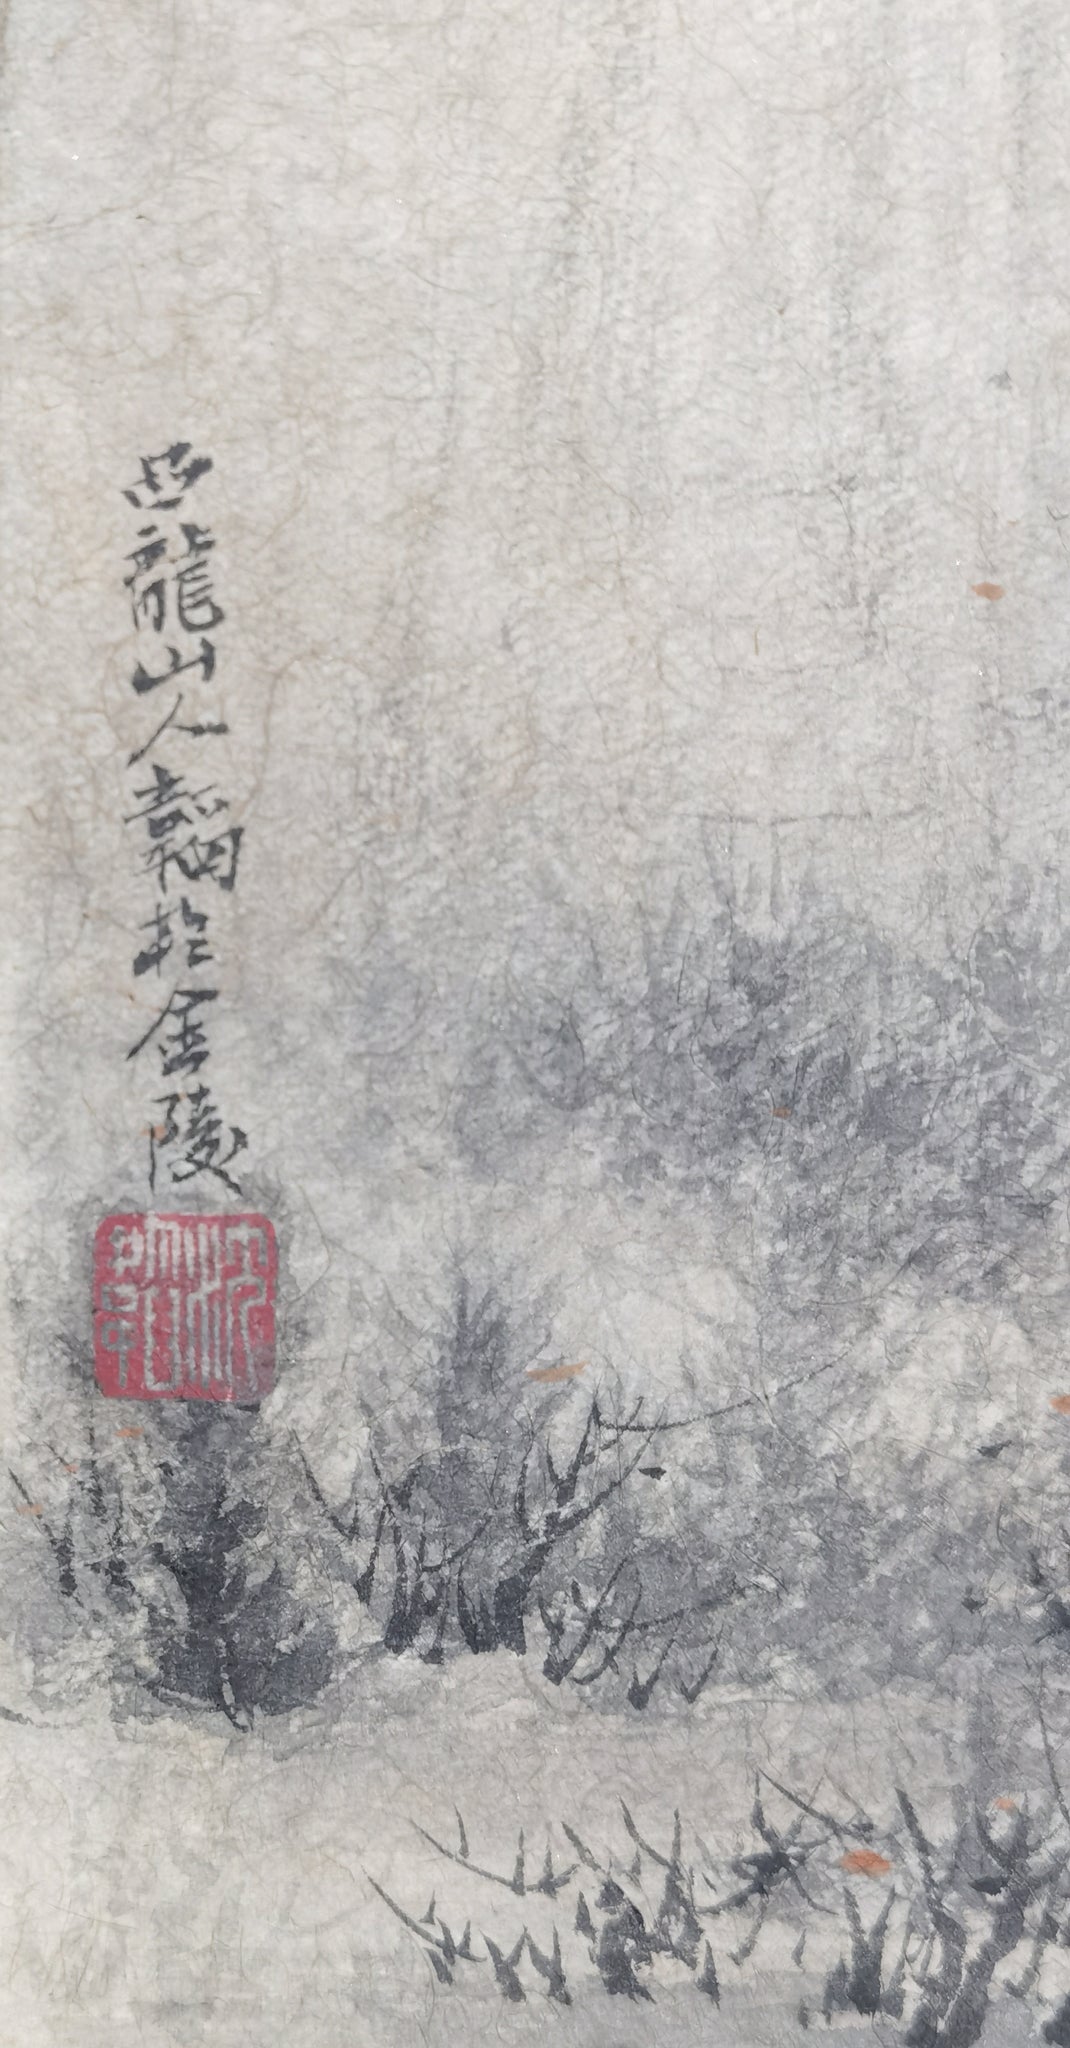 西龍山人韜於金陵